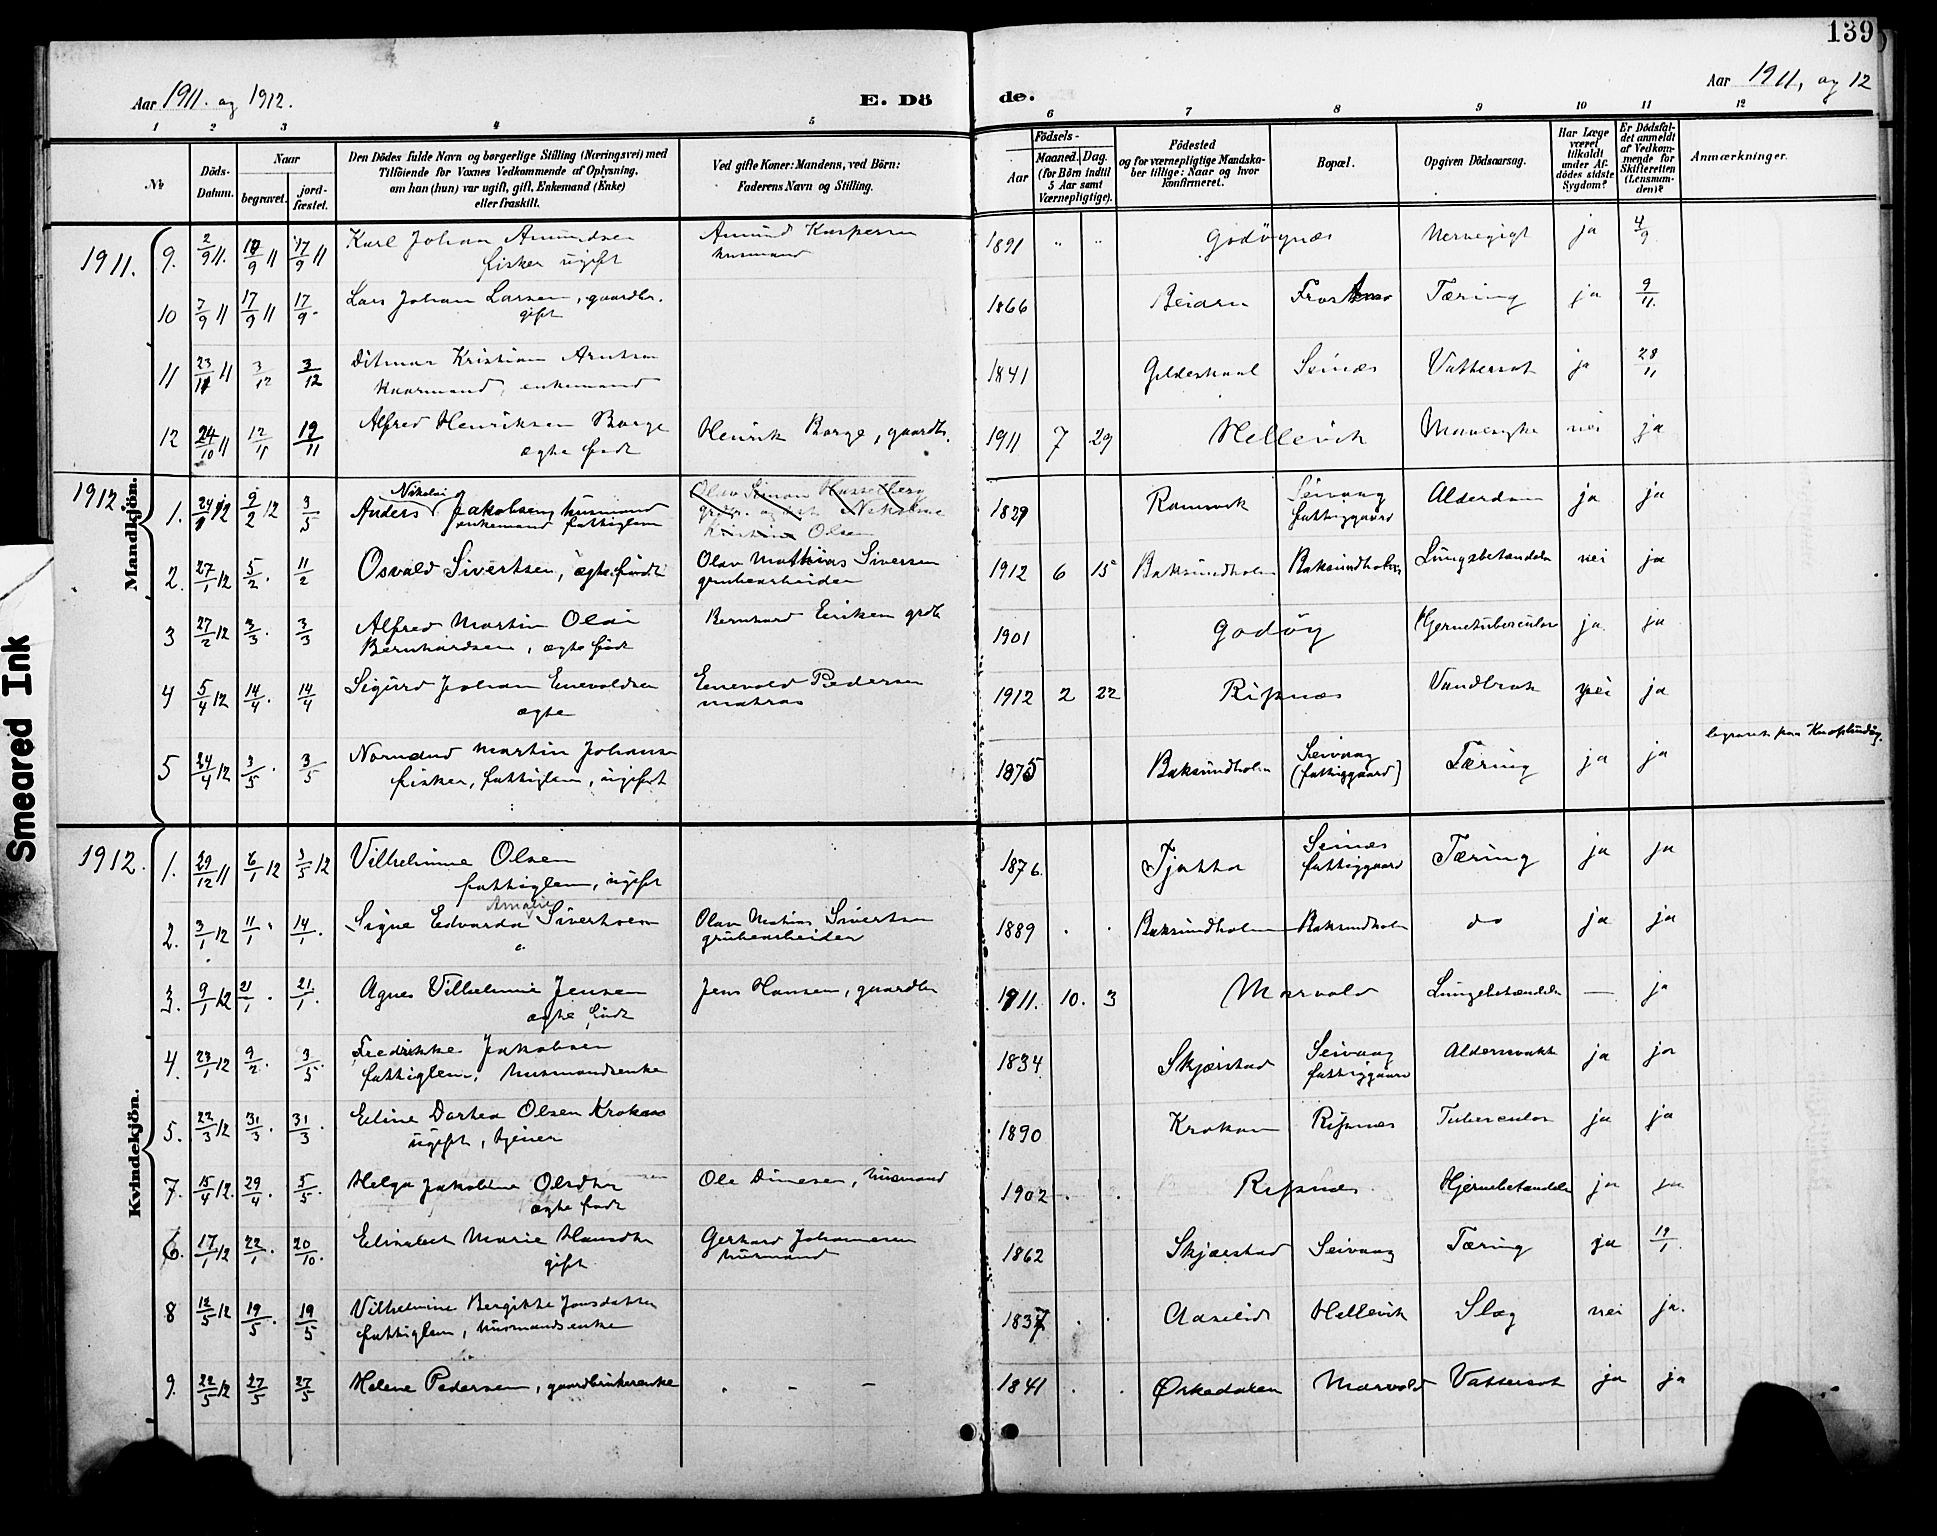 139
Aar 1911. og 1912.
E. Döde.
Aar 1911, og 12
1 2 3 4 5 6 7 8 9 10 11 12
No
Döds-Datum.
Naar
begravet.
jord-fæstet.
Den Dödes fulde Navn og borgerlige Stilling (Næringsvei) med
Tilföiende for Voxnes Vedkommende af Oplysning,
om han (hun) var ugift, gift, Enkemand (Enke)
eller fraskilt.
Ved gifte Koner: Mandens, ved Börn:
Faderens Navn og Stilling.
Födsels-
Aar
Maaned. Dag.
(for Börn indtil
5 Aar samt
Værnepligtige).
Födested
og for værnepligtige Mandska-
ber tillige: Naar og hvor
konfirmeret.
Bopæl.
Opgiven Dödsaarsag.
Har Læge
været
tilkaldt
under Af-
dødes sidste
Sygdom?
Er Dödsfal-
det anmeldt
af Vedkom-
mende for
Skifteretten
(Lensman-
den)?
Anmærkninger.
Mandkjön.
1911.
9. 2/9 11. 17/9 11 17/9 11 Karl Johan Amundsen Amund Kaspersen 1891 " " Godøynæs Nervegigt ja 4/9
fisker ugift husmand
10 7/9 11 17/9 11 17/9. Lars Johan Larsen, gaardbr. 1866 Beiarn Tæring ja 9/11
gift
11 23/11 11 3/12 3/12 Ditmar Kristian Arntsen 1841 Gildeskaal Seinæs Vattersot ja 28/11
enkemand
12 24/10 11 12/11 12/11 Alfred Henriksen Borge Henrik Borge, gaardbr. 1911 7 29 Hellevik Mavesyke nei ja
ægte født
1912
1. 24/1 12 9/2 12 3/5 Anders Nikolai Jakobsen, husmand Olav Simon 1829 Ramsvik Seivaag Alderdom ja ja
enkemand fattiglem fattiggaard
Kristine Olsen
2. 27/1 12 5/2. 11/2 Osvald Sivertsen, ægte født Olav Mathias Siversen 1912 6 15 Baksundholm Baksundholm Lungebetændelse nei ja
grubearbeider
3 27/2 12 3/3. 3/3 Alfred Martin Olai Bernhard Eriksen grdb 1901 Godøy Hjernetuberculose ja ja
Bernhardsen, ægte født
4 5/4 12 14/4. 14/4 Sigurd Johan Enevoldsen Enevold Pedersen 1912 2 22 Ripnæs Vandbrok nei ja
ægte matros
5 24/4 12 3/5. 3/5 Normand Martin Johansen 1875 Baksundholm Seivaag Tæring ja ja begravet paa
fisker, fattiglem, ugift (fattiggaard)
Kvindekjön.
1912.
1. 29/12 11 6/1 12 3/5 12 Vilhelmine Olsen 1876. Tjøtta Seinæs Tæring ja ja
fattiglem, ugift fattiggaard
2. 3/1 12 11/1. 14/1. Signe Edvarda Amalie Sivertsen Olav Matias Sivertsen 1889 . . Baksundholm Baksundholm do ja ja
grubearbeider
3. 9/1 12 21/1. 21/1. Agnes Vilhelmine Jensen Jens Hansen, gaardbr 1911. 10. 3 Morvold Lungebetændelse — ja
ægte født
4. 23/1 12 9/2. 3/5. Fredrikke Jakobsen 1834 Skjærstad Seivaag Aldersvakt ja ja
fattiglem, husmandsenke fattiggaard
5. 22/3 12 31/3. 31/3. Eline Dortea Olsen Krokan 1890 Krokan Ripnes Tuberculose ja ja
ugift, tjener
7. 15/4 12. 29/4. 5/5. Helga Jakobine Olsdtr Ole Dinesen, husmand 1902 . Ripnes Hjernebetændelse ja ja
ægte født
6. 17/1 12 22/1. 20/10. Elisabet Marie Hansdtr Gerhard Johannesen 1862 Skjærstad Seivaag Tæring ja 19/1.
gift husmand
8 12/5 12 19/5. 19/5 Vilhelmine Bergitte Jonsdatter 1837 . . Aaselid Hellevik Slag nei ja.
fattiglem, husmandsenke
9. 22/5 12 27/5 27/5 Helene Pedersen, gaardbrukerenke . – – 1841 . . Ørkedalen Morvold Vattersot ja ja
Smeared Ink